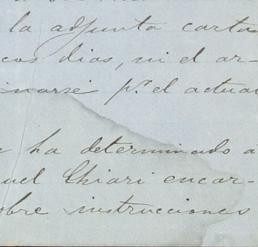 la adjunta carta
cos dias, ni el ar-
narse pr. el actual
ha determinado a
uel Chiari encar-
obre instrucciones